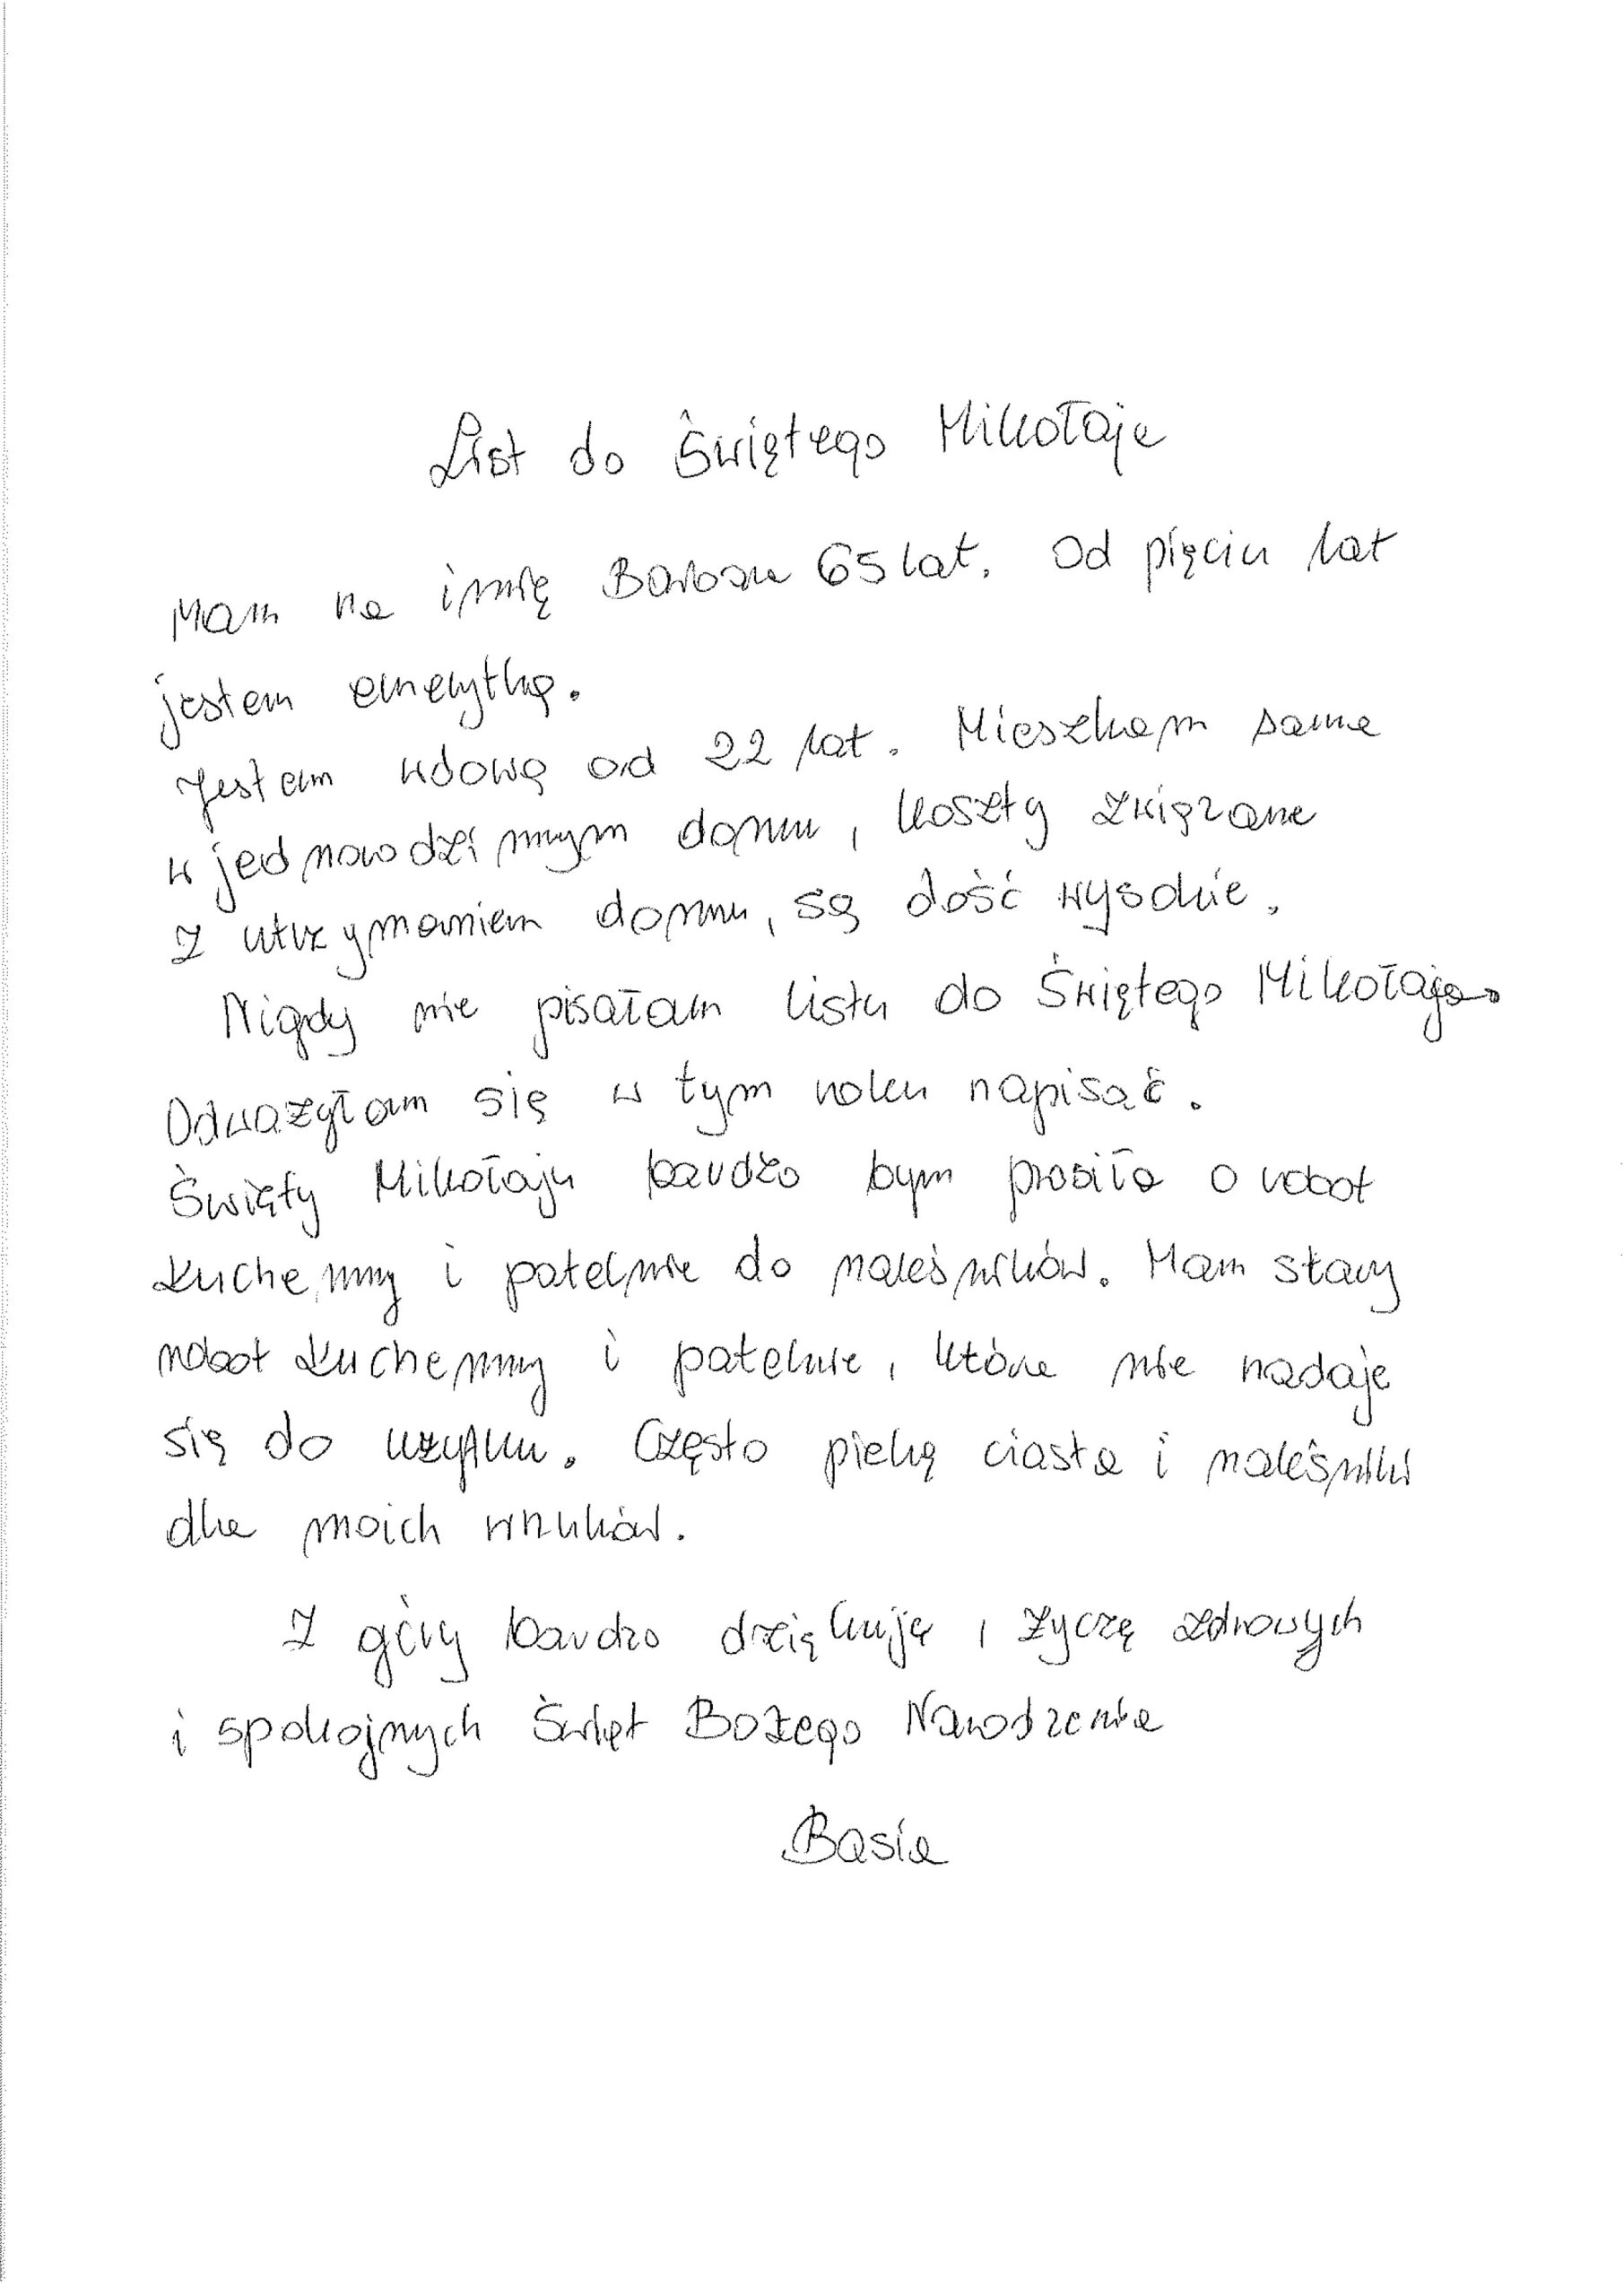 List do Świętego Mikołaja
Mam na imię Barbara 65 lat. Od pięciu lat
jestem emerytką.
Jestem wdową od 22 lat. Mieszkam sama
w jednorodzinnym domu, koszty związane
z utrzymaniem domu, są dość wysokie.
Nigdy nie pisałam listu do Świętego Mikołaja.
Odważyłam się w tym roku napisać.
Święty Mikołaju bardzo bym prosiła o robot
kuchenny i patelnie do naleśników. Mam stary
robot kuchenny i patelnie, które nie nadaje
się do użytku. Często piekę ciasta i naleśniki
dla moich wnuków.
Z góry bardzo dziękuję i życzę zdrowych
i spokojnych Świąt Bożego Narodzenia
Basia